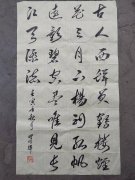 古人西辭黃鶴樓煙
花三月下揚州孤帆
遠影碧空盡唯見長
江天際流